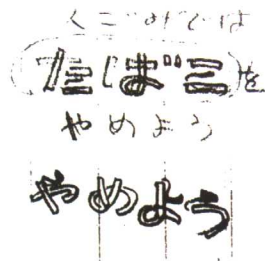 人ごみでは
たばこを
やめよう
やめよう